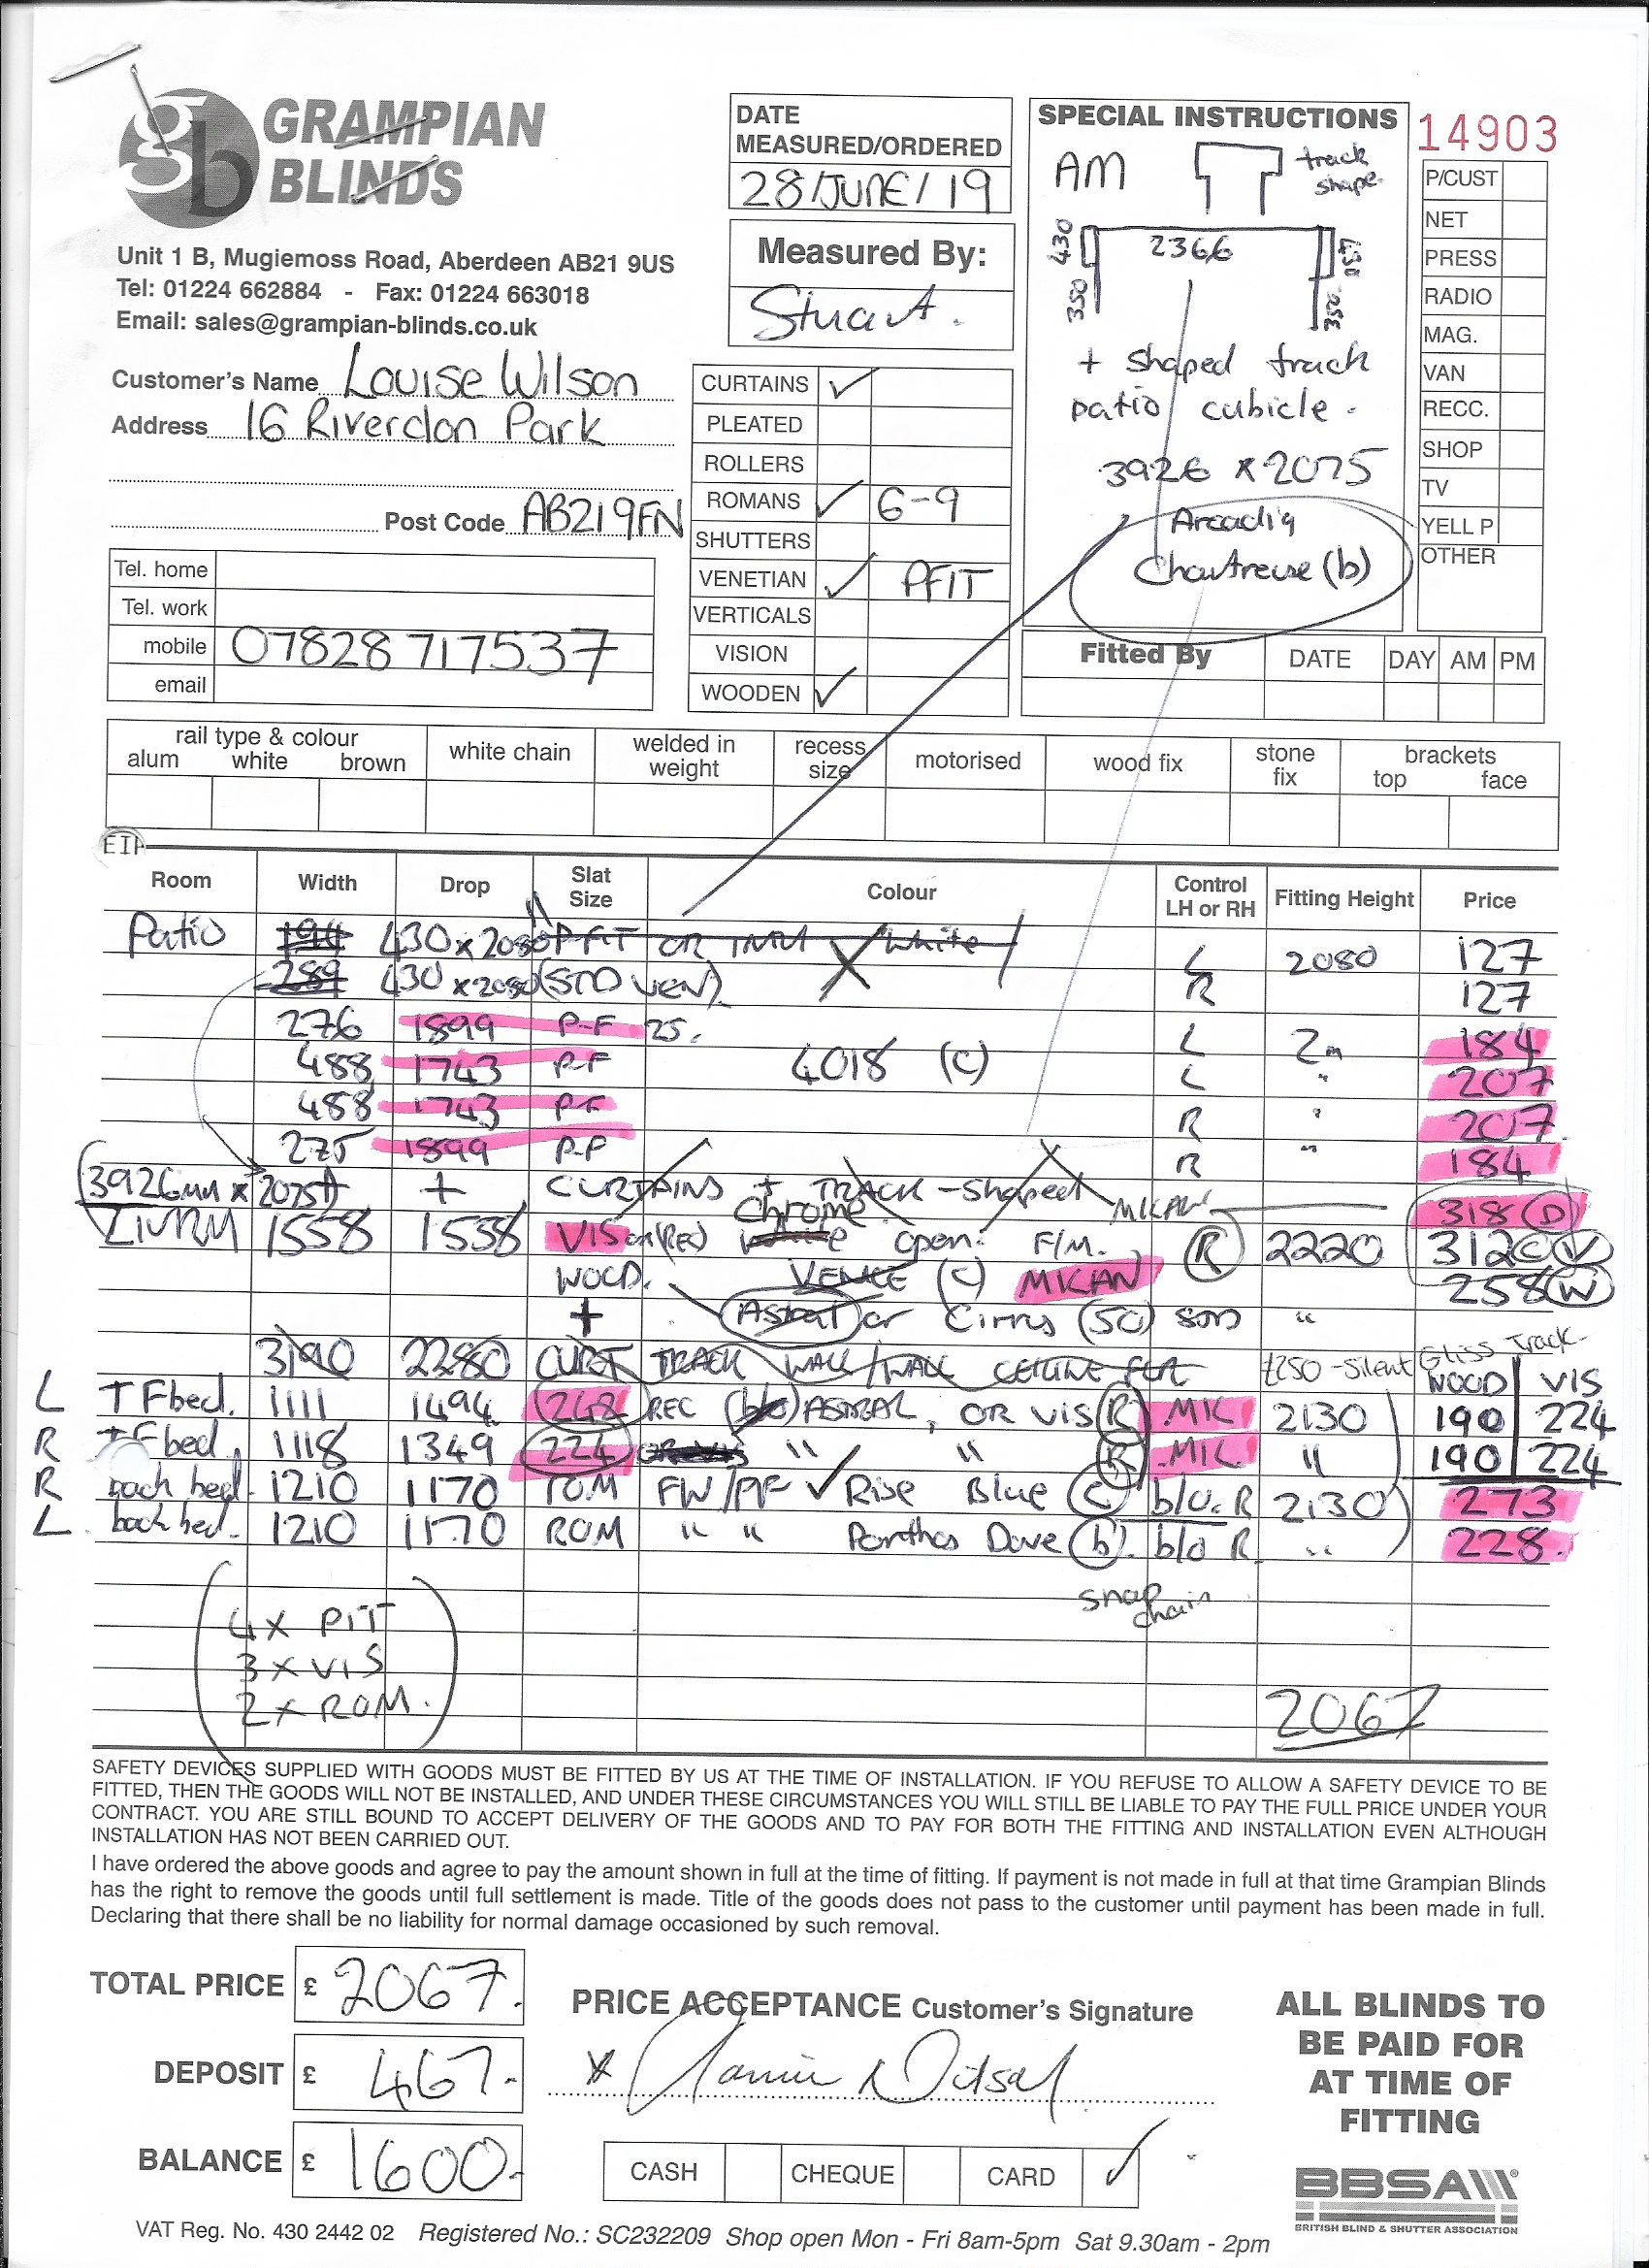 gb GRAMPIAN
BLINDS
Unit 1 B, Mugiemoss Road, Aberdeen AB21 9US
Tel: 01224 662884 - Fax: 01224 663018
Email: sales@grampian-blinds.co.uk
Customer's Name Louise Wilson
Address 16 Riverdon Park
Post Code AB219FN
Tel. home
Tel. work
mobile 07828 717537
email
DATE
MEASURED/ORDERED
28/JUNE/19
Measured By:
Stuart.
CURTAINS ✓
PLEATED
ROLLERS
ROMANS ✓ 6-9
SHUTTERS
VENETIAN ✓ PFIT
VERTICALS
VISION
WOODEN ✓
SPECIAL INSTRUCTIONS
AM track
shape.
430 2366 430
350 350
+ shaped track
patio cubicle.
3926 x 2075
Arcadia
Chautreuse (b)
14903
P/CUST
NET
PRESS
RADIO
MAG.
VAN
RECC.
SHOP
TV
YELL P
OTHER
Fitted By DATE DAY AM PM
rail type & colour
alum white brown
white chain
welded in
weight
recess
size
motorised
wood fix
stone
fix
brackets
top face
Room Width Drop Slat Size Colour Control LH or RH Fitting Height Price
Patio 194 430 x 2080 PFIT OR White L 2080 127
289 430 x 2080 (STD VEN). R 127
276 1899 P-F 25. L 2m 184
488 1743 P-F 4018 (C) L " 207
488 1743 P-F R " 207
275 1899 P-F R " 184
3926mm x 2075 + CURTAINS + TRACK - Shaped MIKAN 318 (D)
LIVRM 1558 1558 VISion (REC) white Chrome open: F/M. R 2220 312 (V)
WOOD. VENICE (C) MIKAN 258 (W)
+ Astral or Cirrus (50) "
3190 2280 CURT TRACK WALL/WALL CEILING FIX £250 - Silent Gliss Track.
WOOD VIS
L TF bed. 1111 1494 (248) REC ASTRAL, OR VIS (R) MIK 2130 190 224
R TF bed. 1118 1349 (224) " " (R) MIK " 190 224
R back bed. 1210 1170 ROM FW/PF ✓ Rise Blue (C) b/o. R 2130 273
L. back bed. 1210 1170 ROM " " Ponthos Dove (b). b/o R " 228.
snap
chain
4 x PIT
3 x VIS
2 x ROM.
2067
SAFETY DEVICES SUPPLIED WITH GOODS MUST BE FITTED BY US AT THE TIME OF INSTALLATION. IF YOU REFUSE TO ALLOW A SAFETY DEVICE TO BE
FITTED, THEN THE GOODS WILL NOT BE INSTALLED, AND UNDER THESE CIRCUMSTANCES YOU WILL STILL BE LIABLE TO PAY THE FULL PRICE UNDER YOUR
CONTRACT. YOU ARE STILL BOUND TO ACCEPT DELIVERY OF THE GOODS AND TO PAY FOR BOTH THE FITTING AND INSTALLATION EVEN ALTHOUGH
INSTALLATION HAS NOT BEEN CARRIED OUT.
I have ordered the above goods and agree to pay the amount shown in full at the time of fitting. If payment is not made in full at that time Grampian Blinds
has the right to remove the goods until full settlement is made. Title of the goods does not pass to the customer until payment has been made in full.
Declaring that there shall be no liability for normal damage occasioned by such removal.
TOTAL PRICE £ 2067.
DEPOSIT £ 467.
BALANCE £ 1600.
PRICE ACCEPTANCE Customer's Signature
x
CASH CHEQUE CARD ✓
ALL BLINDS TO
BE PAID FOR
AT TIME OF
FITTING
BBSA
BRITISH BLIND & SHUTTER ASSOCIATION
VAT Reg. No. 430 2442 02 Registered No.: SC232209 Shop open Mon - Fri 8am-5pm Sat 9.30am - 2pm